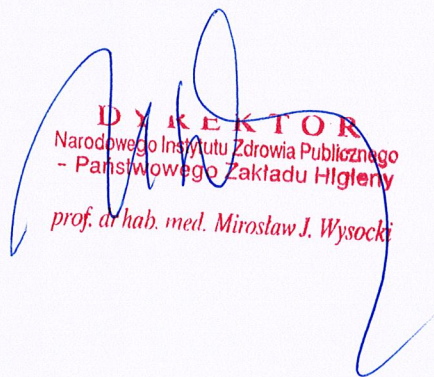 DYREKTOR
Narodowego Instytutu Zdrowia Publicznego
- Państwowego Zakładu Higieny
prof. dr hab. med. Mirosław J. Wysocki